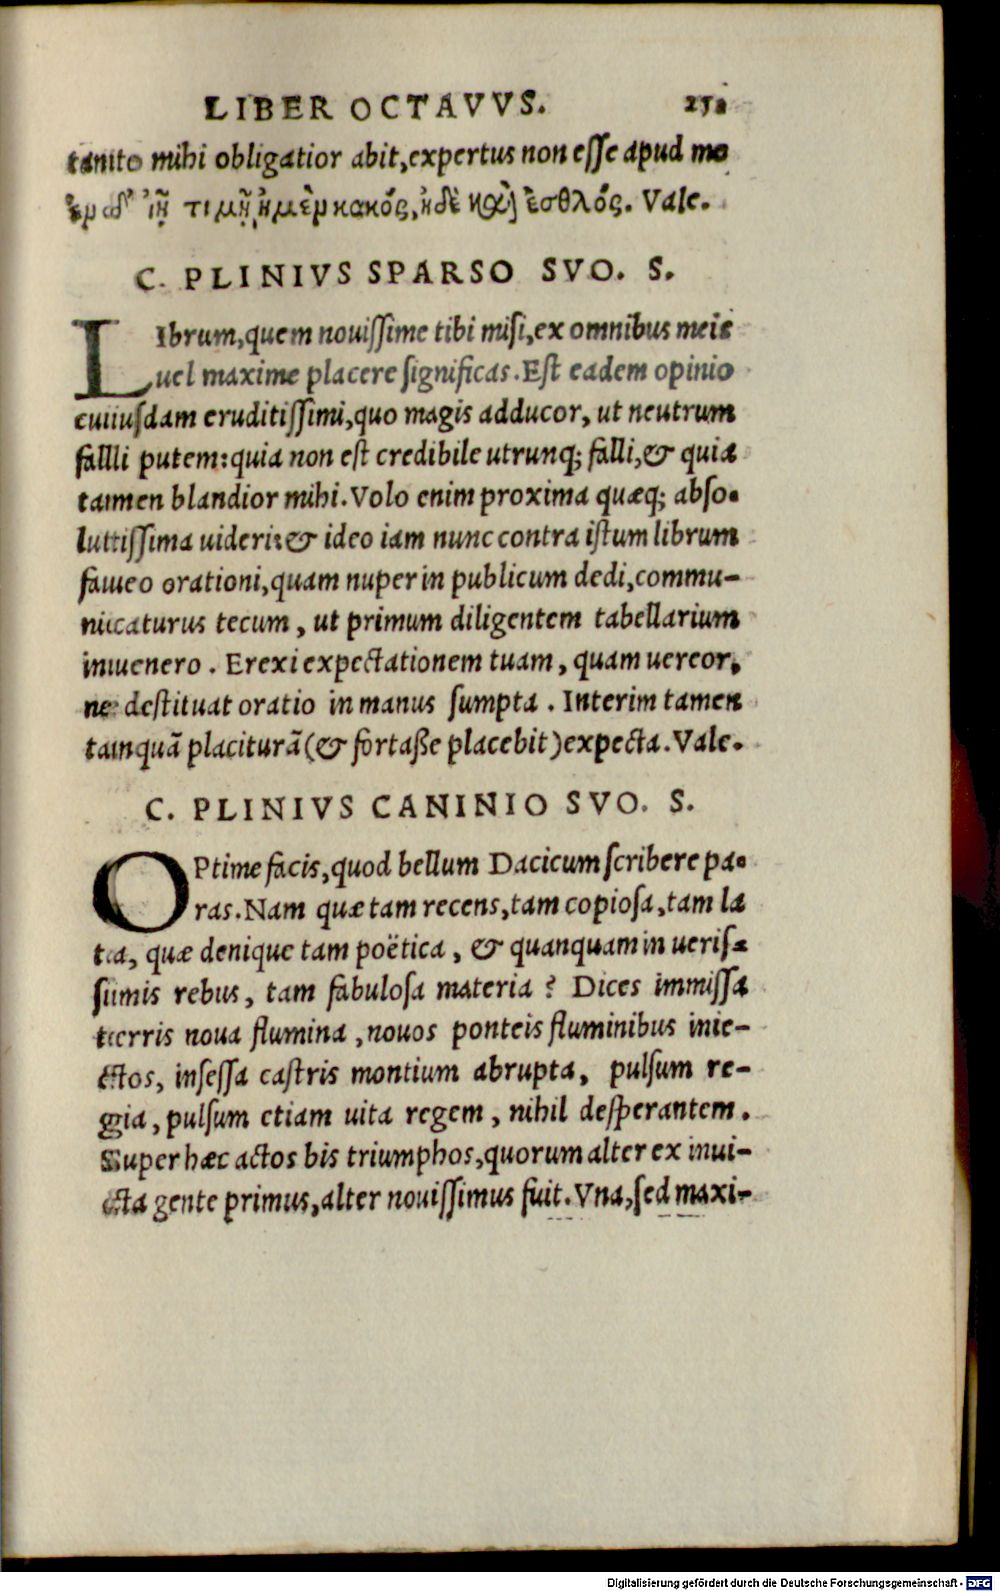 LIBER OCTAVVS.
tanto mihi obligatior abit,expertus non esse apud me
ἐν δ' ἰῇ τιμῇ ἠμὲρ κακός,ἠδὲ καὶ ἐσθλός. Vale.
C. PLINIVS SPARSO SVO. S.
LIbrum,quem nouissime tibi misi,ex omnibus meis
uel maxime placere significas.Est eadem opinio
cuiusdam eruditissimi,quo magis adducor, ut neutrum
falli putem:quia non est credibile utrunq; falli,& quia
tamen blandior mihi.Volo enim proxima quæq; abso-
lutissima uideri:& ideo iam nunc contra istum librum
faueo orationi,quam nuper in publicum dedi,commu-
nicaturus tecum, ut primum diligentem tabellarium
inuenero. Erexi expectationem tuam, quam uereor,
ne destituat oratio in manus sumpta. Interim tamen
tanquã placiturã(& fortaße placebit)expecta.Vale.
C. PLINIVS CANINIO SVO. S.
OPtime facis,quod bellum Dacicum scribere pa-
ras.Nam quæ tam recens,tam copiosa,tam la
ta, quæ denique tam poëtica, & quanquam in ueris-
simis rebus, tam fabulosa materia? Dices immissa
terris noua flumina,nouos ponteis fluminibus inie-
ctos, insessa castris montium abrupta, pulsum re-
gia,pulsum etiam uita regem, nihil desperantem.
Super hæc actos bis triumphos,quorum alter ex inui-
cta gente primus,alter nouissimus fuit.Vna,sed maxi-
Digitalisierung gefördert durch die Deutsche Forschungsgemeinschaft - DFG